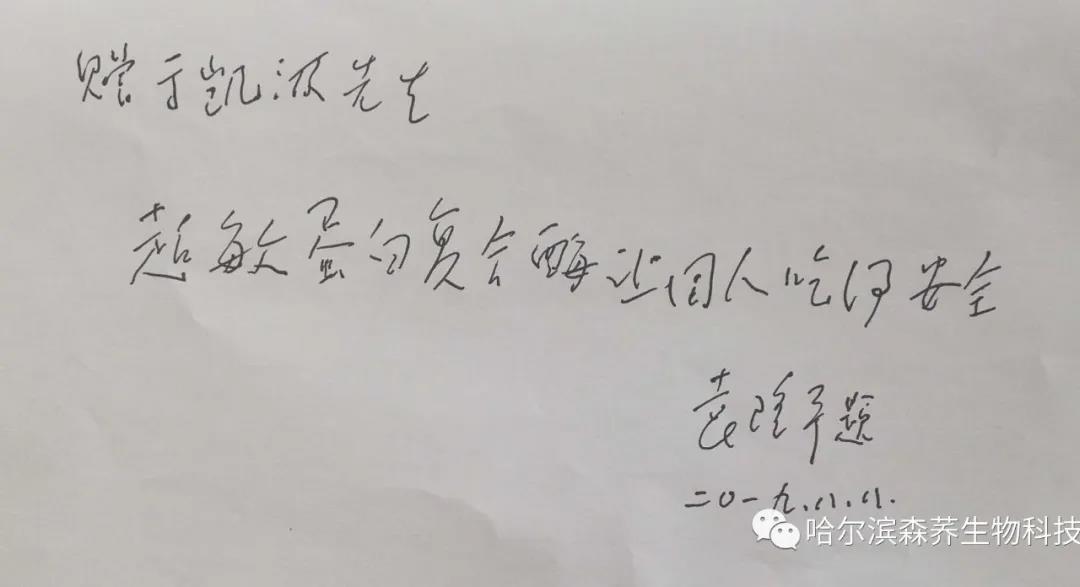 赠于凯波先生
超敏蛋白复合酶让国人吃得安全
袁隆平题
二〇一九.八.八.
哈尔滨森荞生物科技